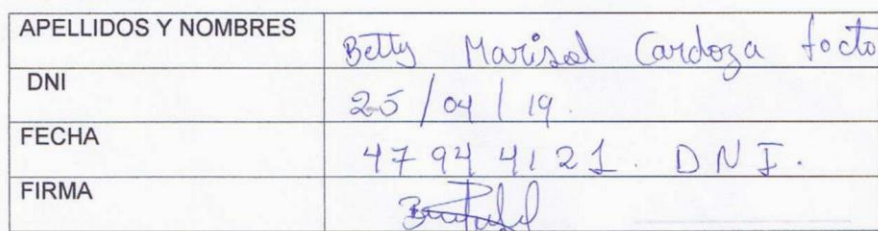 APELLIDOS Y NOMBRES Betty Marisol Cardoza tocto
DNI 25/04/19.
FECHA 47944121. DNI.
FIRMA